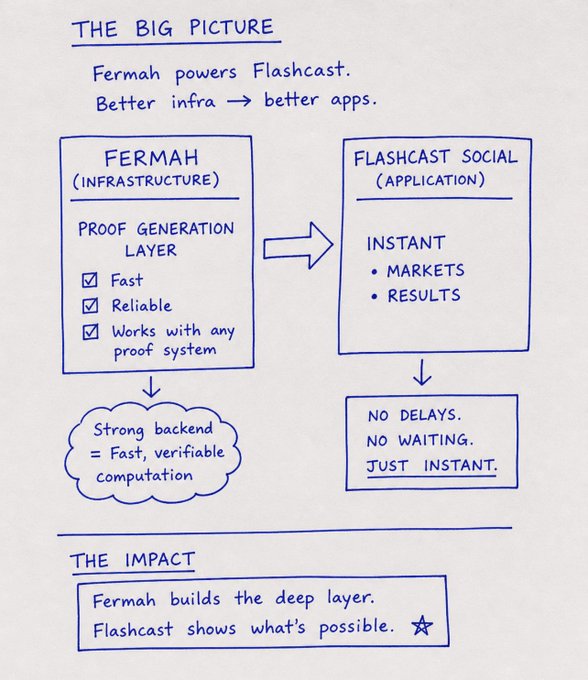 THE BIG PICTURE
Fermah powers Flashcast.
Better infra → better apps.
FERMAH
(INFRASTRUCTURE)
PROOF GENERATION
LAYER
☑ Fast
☑ Reliable
☑ Works with any
proof system
Strong backend
= Fast, verifiable
computation
FLASHCAST SOCIAL
(APPLICATION)
INSTANT
• MARKETS
• RESULTS
NO DELAYS.
NO WAITING.
JUST INSTANT.
THE IMPACT
Fermah builds the deep layer.
Flashcast shows what's possible. ☆